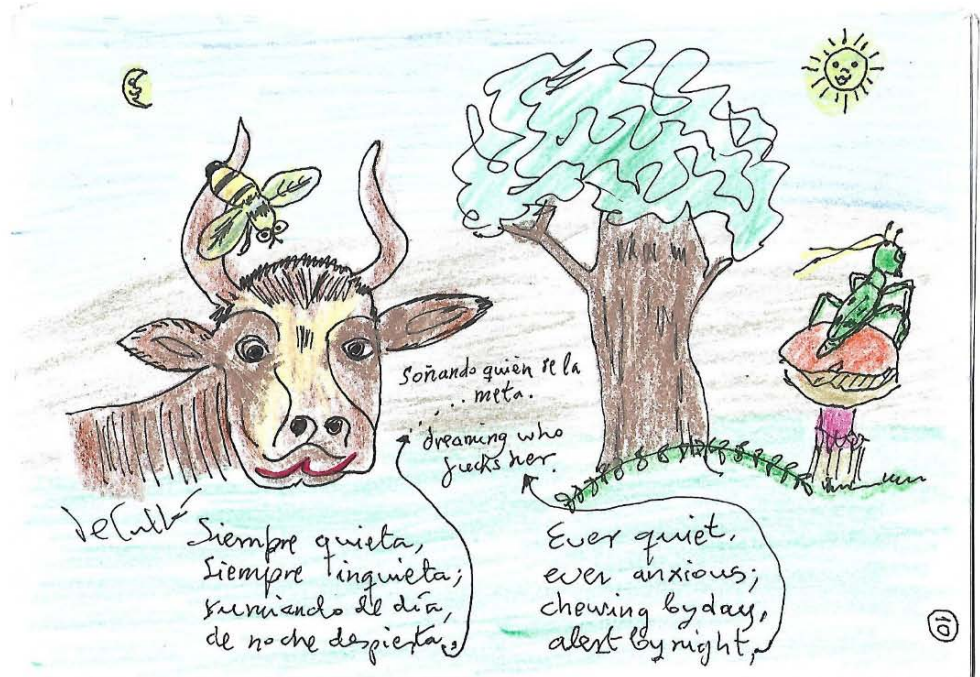 Soñando quién se la
... meta.
dreaming who
fucks her.
De Cullá
Siempre quieta,
Siempre inquieta;
rumiando de día,
de noche despierta,
Ever quiet,
ever anxious;
chewing by day,
alert by night,
10